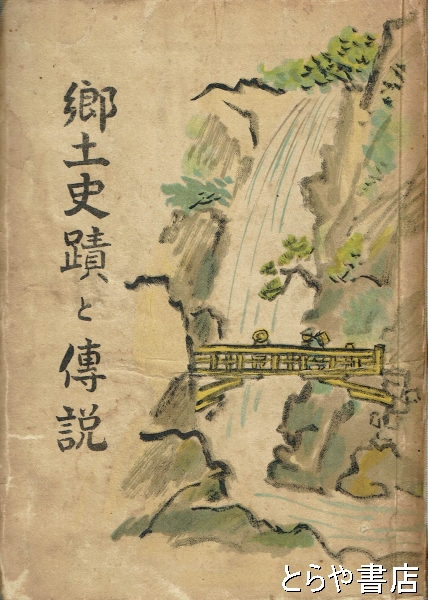 郷土史蹟と傳説
とらや書店